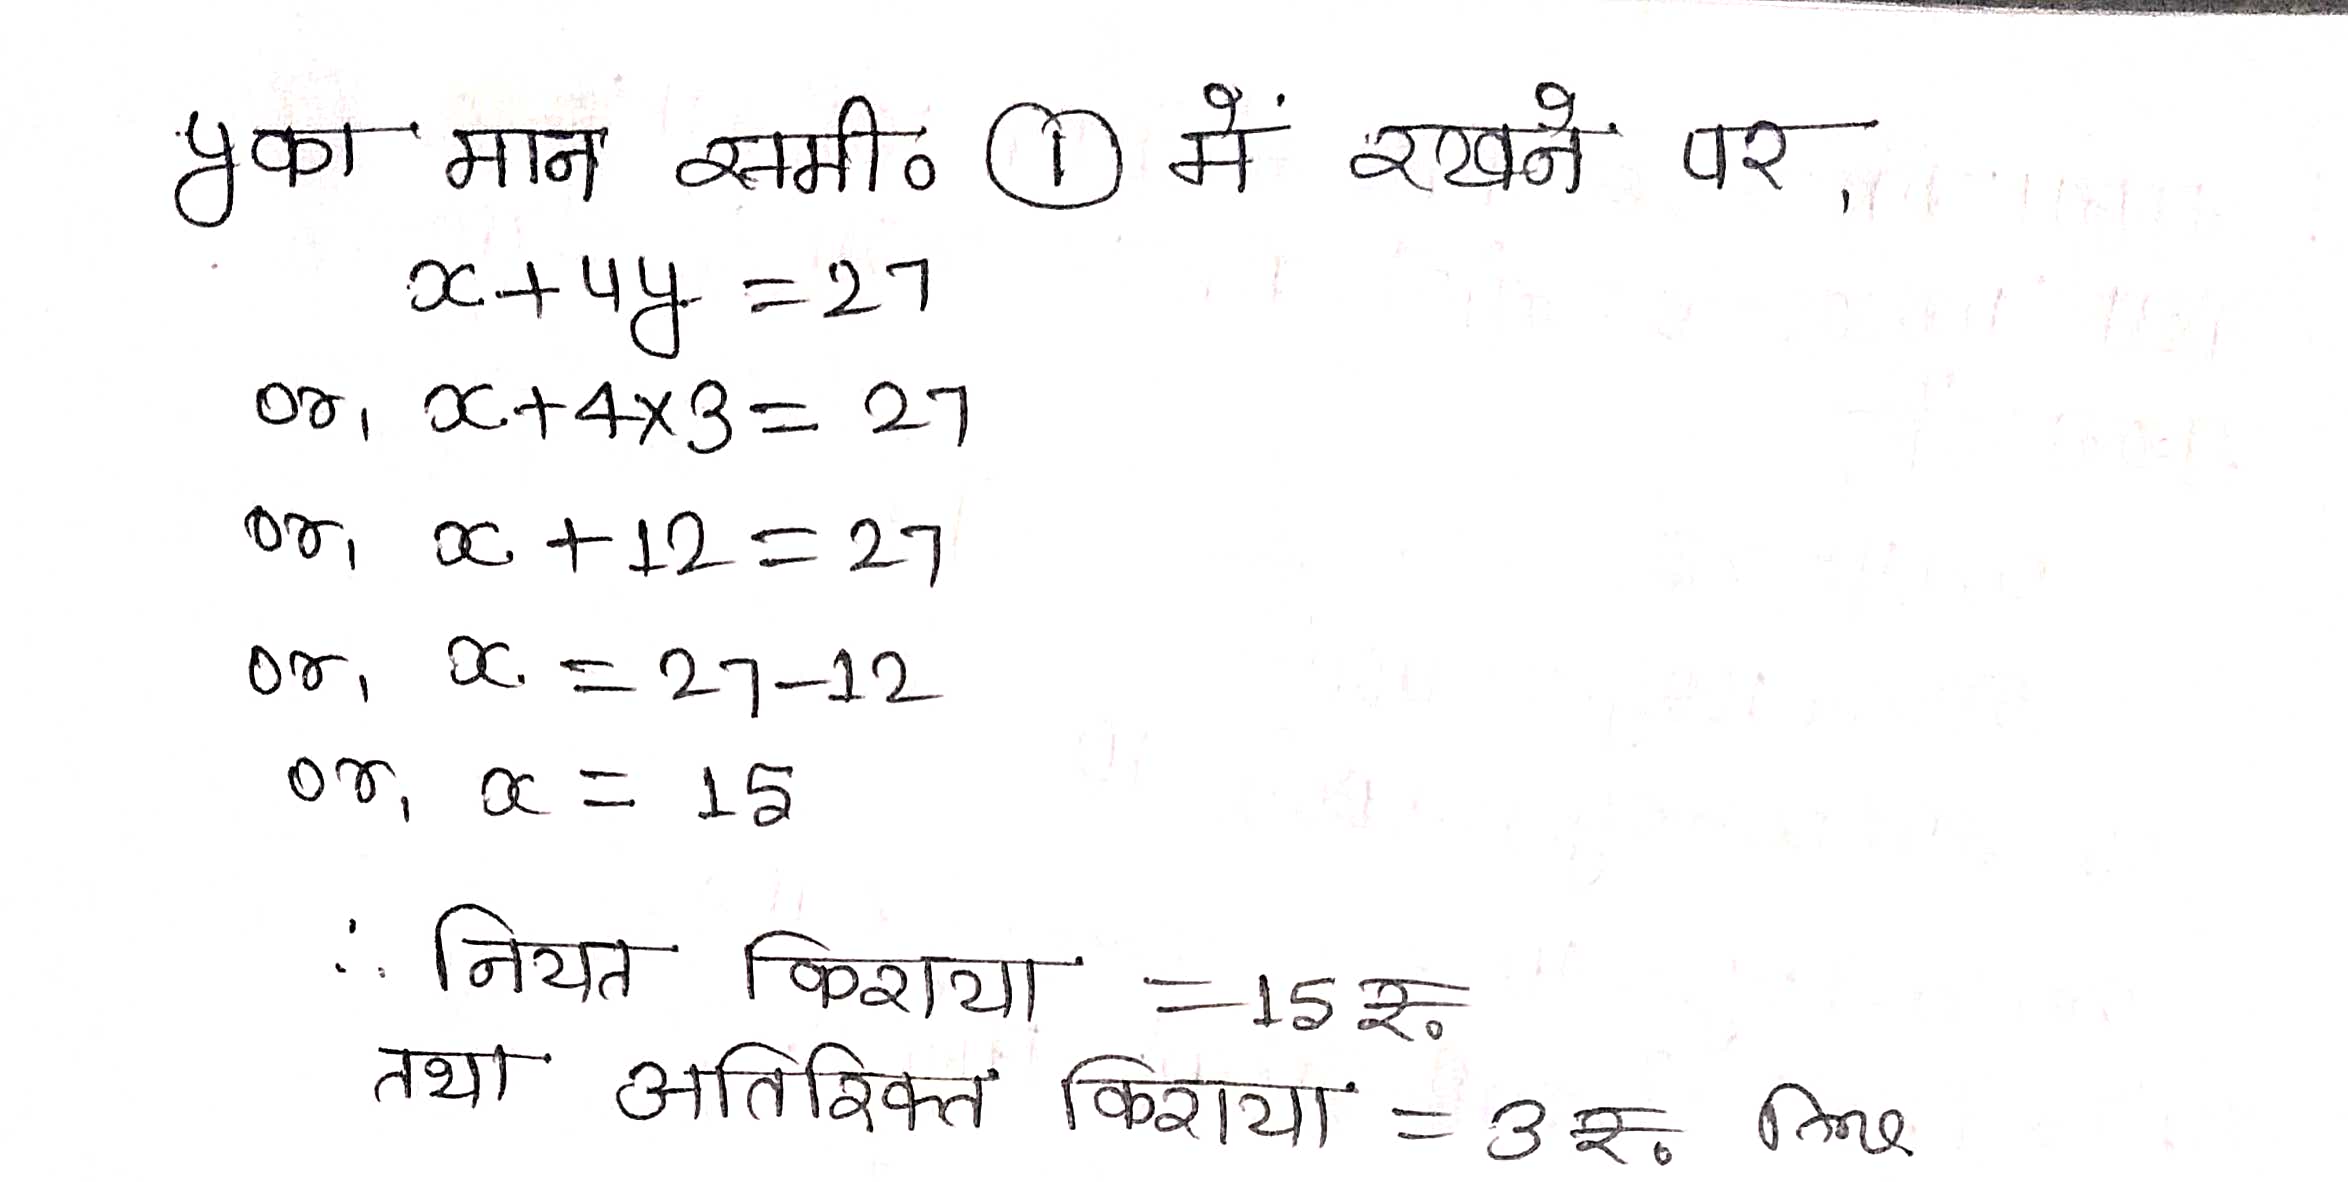 y का मान समी० ① में रखने पर,
x + 4y = 27
or, x + 4 × 3 = 27
or, x + 12 = 27
or, x = 27 - 12
or, x = 15
∴ नियत किराया = 15 रु०
तथा अतिरिक्त किराया = 3 रु०